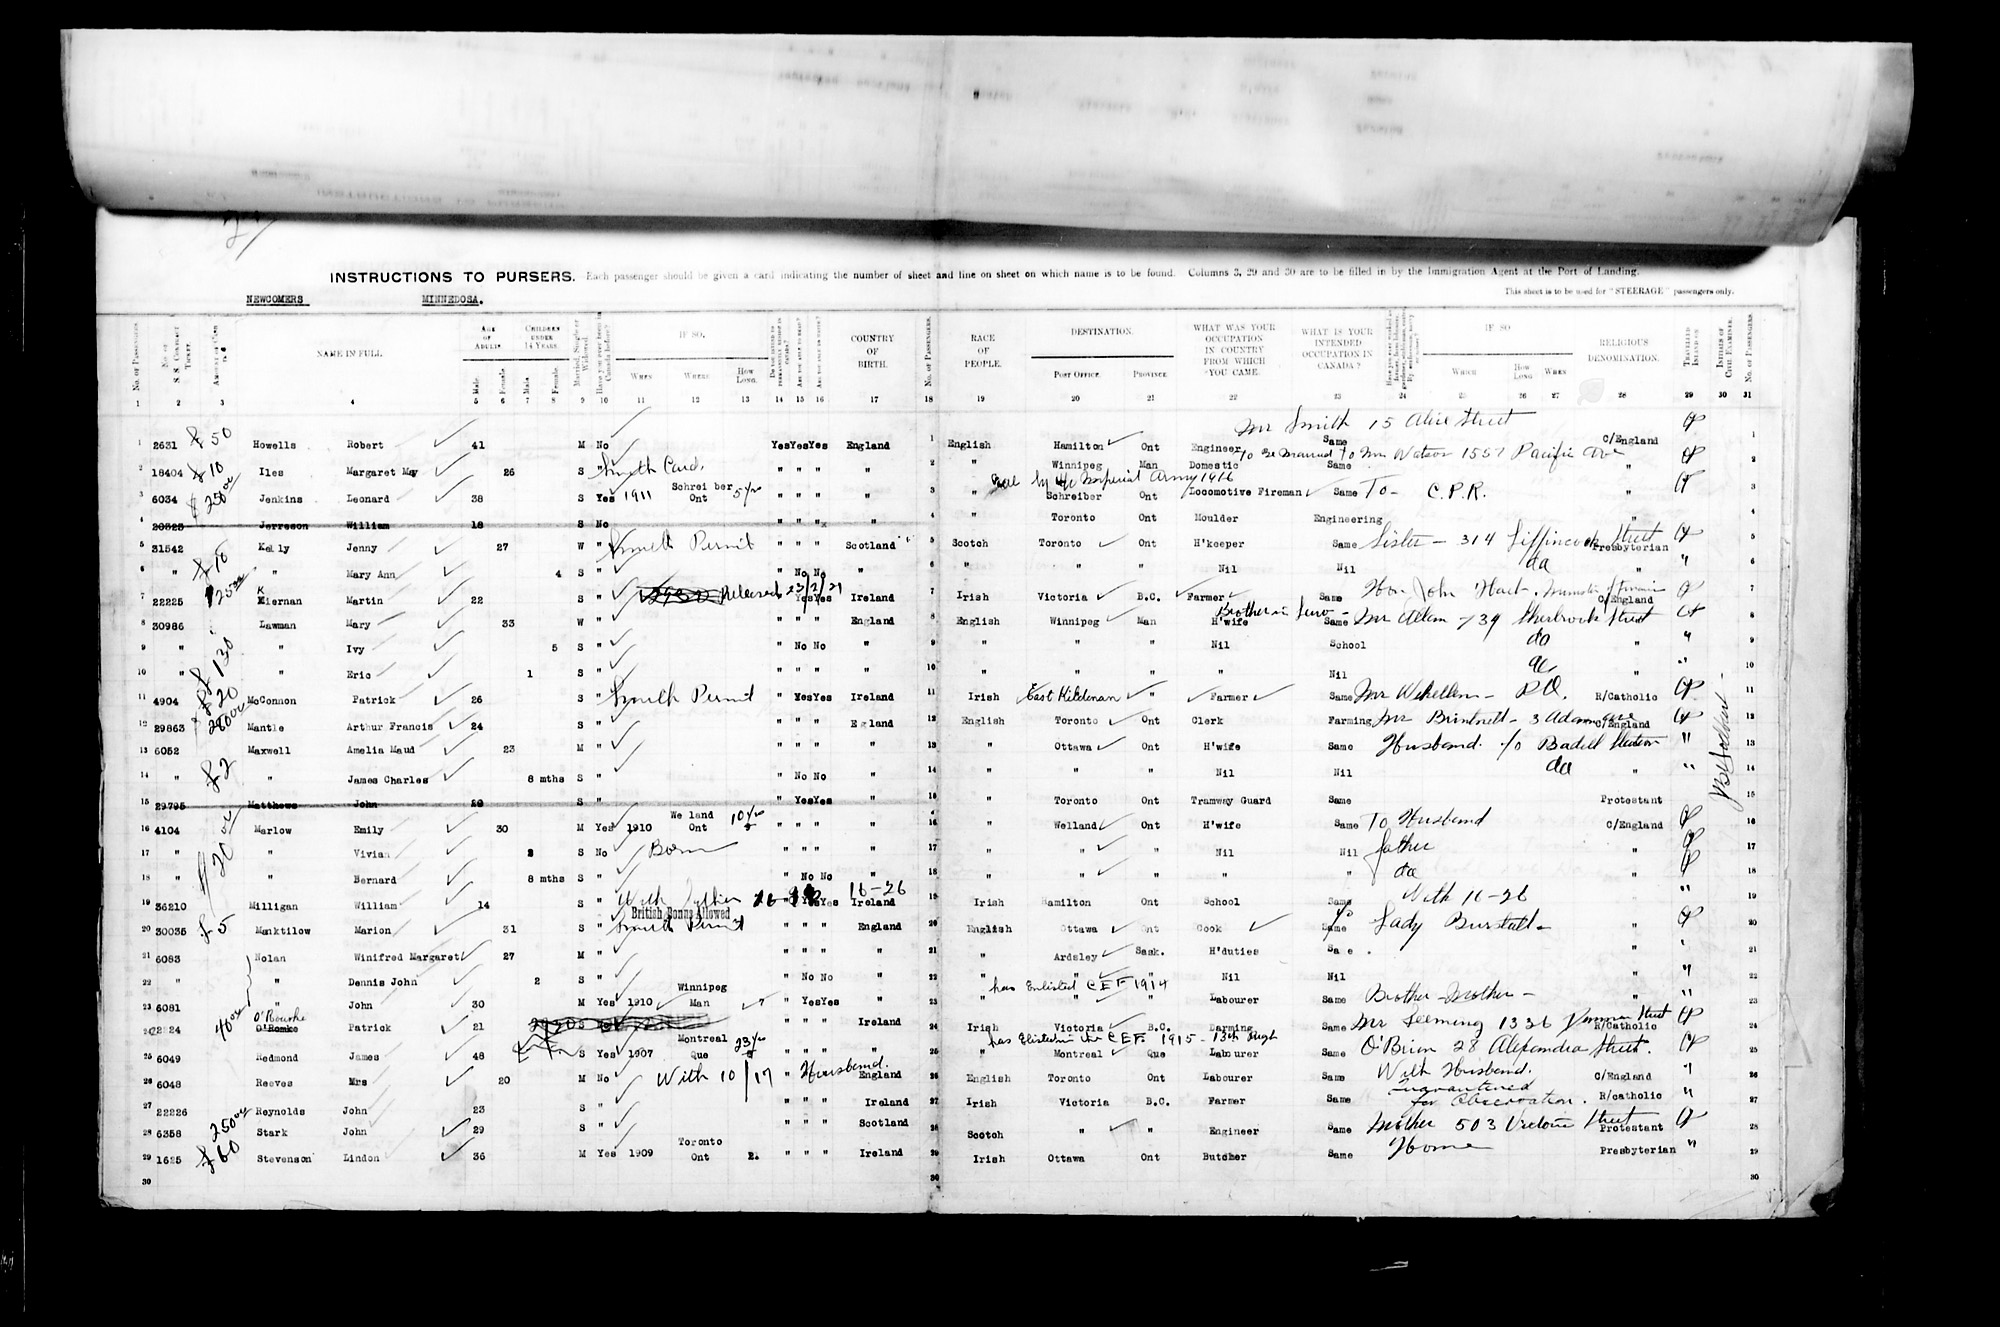 INSTRUCTIONS TO PURSERS. Each passenger should be given a card indicating the number of sheet and line on sheet on which name is to be found. Columns 3, 29 and 30 are to be filled in by the Immigration Agent at the Port of Landing.
This sheet is to be used for "STEERAGE" passengers only.
NEWCOMERS MINNEDOSA.
No. of Passengers. No. of S.S. Contract Ticket. NAME IN FULL AGE OF ADULTS CHILDREN UNDER 14 YEARS. Married, Single or Widowed. IF SO, COUNTRY OF BIRTH. No. of Passengers. RACE OF PEOPLE. DESTINATION. WHAT WAS YOUR OCCUPATION IN COUNTRY FROM WHICH YOU CAME. WHAT IS YOUR INTENDED OCCUPATION IN CANADA? IF SO RELIGIOUS DENOMINATION. TRAVELLING INLAND ON INITIALS OF CIVIL EXAMINER. No. of Passengers.
Male. Female. Male. Female. WHEN WHERE HOW LONG. POST OFFICE. PROVINCE WHICH HOW LONG WHEN
1 2 3 4 5 6 7 8 9 10 11 12 13 14 15 16 17 18 19 20 21 22 23 24 25 26 27 28 29 30 31
Mr Smith 15 Alice Street
1 2631 £50 Howells Robert 41 M No Yes Yes Yes England 1 English Hamilton Ont Engineer Same C/England 1
to be married to Mr Watson 1557 Pacific Ave
2 18404 £10 Iles Margaret May 26 S " " " " " 2 " Winnipeg Man Domestic Same " 2
Imperial Army 1916
3 6034 $250 00 Jenkins Leonard 38 S Yes 1911 Schreiber Ont 5 yrs " " " " 3 " Schreiber Ont Locomotive Fireman Same To - C.P.R. " 3
4 20823 Jerreson William 18 S No " " " " 4 " Toronto Ont Moulder Engineering 4
5 31542 Kelly Jenny 27 W " Permit " " " Scotland 5 Scotch Toronto Ont H'keeper Same Sister - 314 Lippincott Street Presbyterian 5
6 " £10 " Mary Ann 4 S " " No No " 6 " " " Nil Nil do " 6
7 22225 $25 00 Kiernan Martin 22 S " Released 23/2/21 Yes Yes Ireland 7 Irish Victoria B.C. Farmer Same Hon John Hart - Minister of Finance C/England 7
Brother in law -
8 30986 Lawman Mary 33 W " " " " England 8 English Winnipeg Man H'wife Same Mr Allen - 739 Sherbrook Street 8
9 " " Ivy 5 S " " No No " 9 " " " Nil School do " 9
10 " £130 " Eric 1 S " " " " " 10 " " " " Nil do " 10
11 4904 £20 McConnon Patrick 26 S " Permit " Yes Yes Ireland 11 Irish East Kildonan " Farmer Same P.O. R/Catholic 11
12 29863 280 00 Mantle Arthur Francis 24 S " " " " England 12 English Toronto Ont Clerk Farming C/England 12
13 6052 Maxwell Amelia Maud 23 M " " " " " 13 " Ottawa Ont H'wife Same Husband 13
14 " £2 " James Charles 8 mths S " " No No " 14 " " " Nil Nil do " 14
15 29795 Matthews John 20 S " " Yes Yes " 15 " Toronto Ont Tramway Guard Same Protestant 15
16 4104 Marlow Emily 30 M Yes 1910 Welland Ont 10 yrs " " " " 16 " Welland Ont H'wife Same To Husband C/England 16
17 " " Vivian S No Born " " " " 17 " " " Nil Nil father " 17
18 " " Bernard 8 mths S " " No No " 18 " " " " " do " 18
19 36210 Milligan William 14 S " With father 16-26 Yes Yes Ireland 19 Irish Hamilton Ont School Same With 16-26 19
British Bonus Allowed
20 30035 £5 Manktilow Marion 31 S " Permit " " " England 20 English Ottawa Ont Cook Same Lady Burstall - " 20
21 6083 Nolan Winifred Margaret 27 M " " " " " 21 " Ardsley Sask. H'duties Same " 21
22 " " Dennis John 2 S " " No No " 22 " " " Nil Nil " 22
has Enlisted C E F 1914
23 6081 40 00 " John 30 M Yes 1910 Winnipeg Man 7 " Yes Yes " 23 " " " Labourer Same Brother - Mother - " 23
24 22224 O'Rourke O'Romke Patrick 21 " " " Ireland 24 Irish Victoria B.C. Darming Same Mr Leeming 1326 Street R/Catholic 24
has Enlisted in the C E F. 1915 - 13th
25 6049 Redmond James 48 S Yes 1907 Montreal Que 23 yrs " " " " 25 " Montreal Que Labourer Same O'Brien 28 Alexandra Street. " 25
26 6048 Reeves Mrs 20 M No With 10/17 Husband. England 26 English Toronto Ont Labourer Same With Husband. C/England 26
Quarantined
27 22226 Reynolds John 23 S " " " " Ireland 27 Irish Victoria B.C. Farmer Same for Observation. R/catholic 27
28 6358 250 00 Stark John 29 S " " " " Scotland 28 Scotch " " Engineer Same Mother 503 Victoria Street Protestant 28
29 1625 £60 Stevenson Lindon 36 M Yes 1909 Toronto Ont 2. " " " Ireland 29 Irish Ottawa Ont Butcher Same Home Presbyterian 29
30 30 30